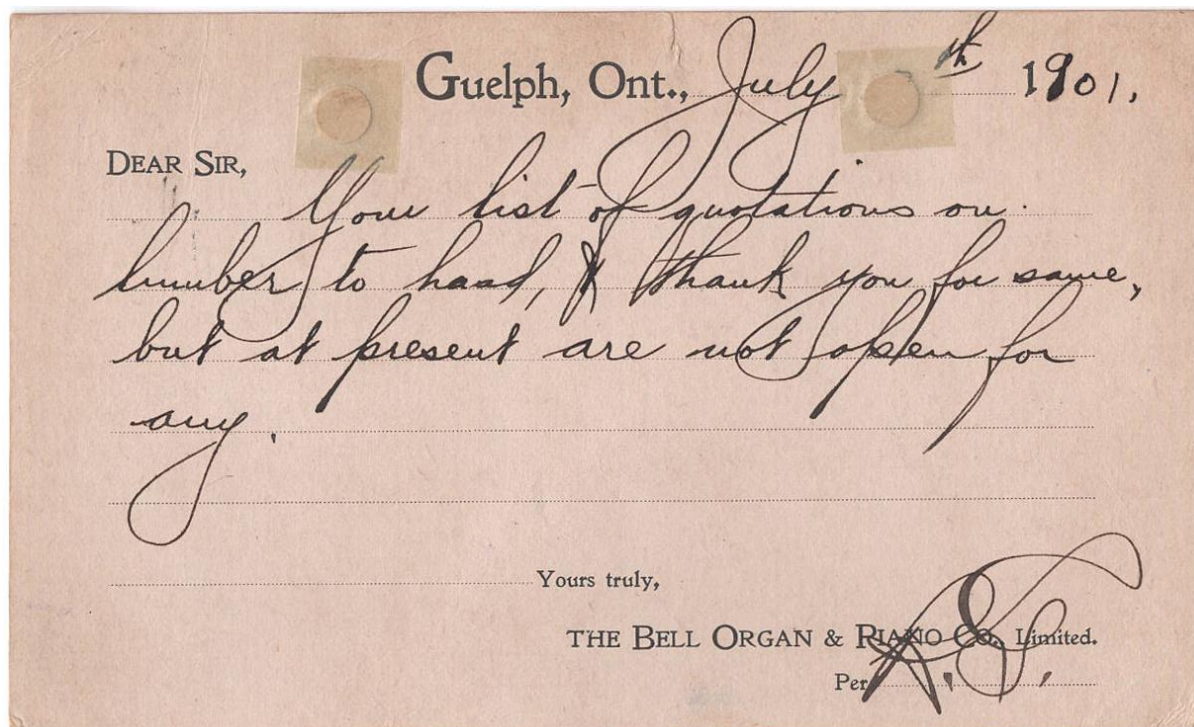 Guelph, Ont., July th 1901.
DEAR SIR,
Your list of quotations on
lumber to hand, & thank you for same,
but at present are not open for
any.
Yours truly,
THE BELL ORGAN & PIANO CO. Limited.
Per